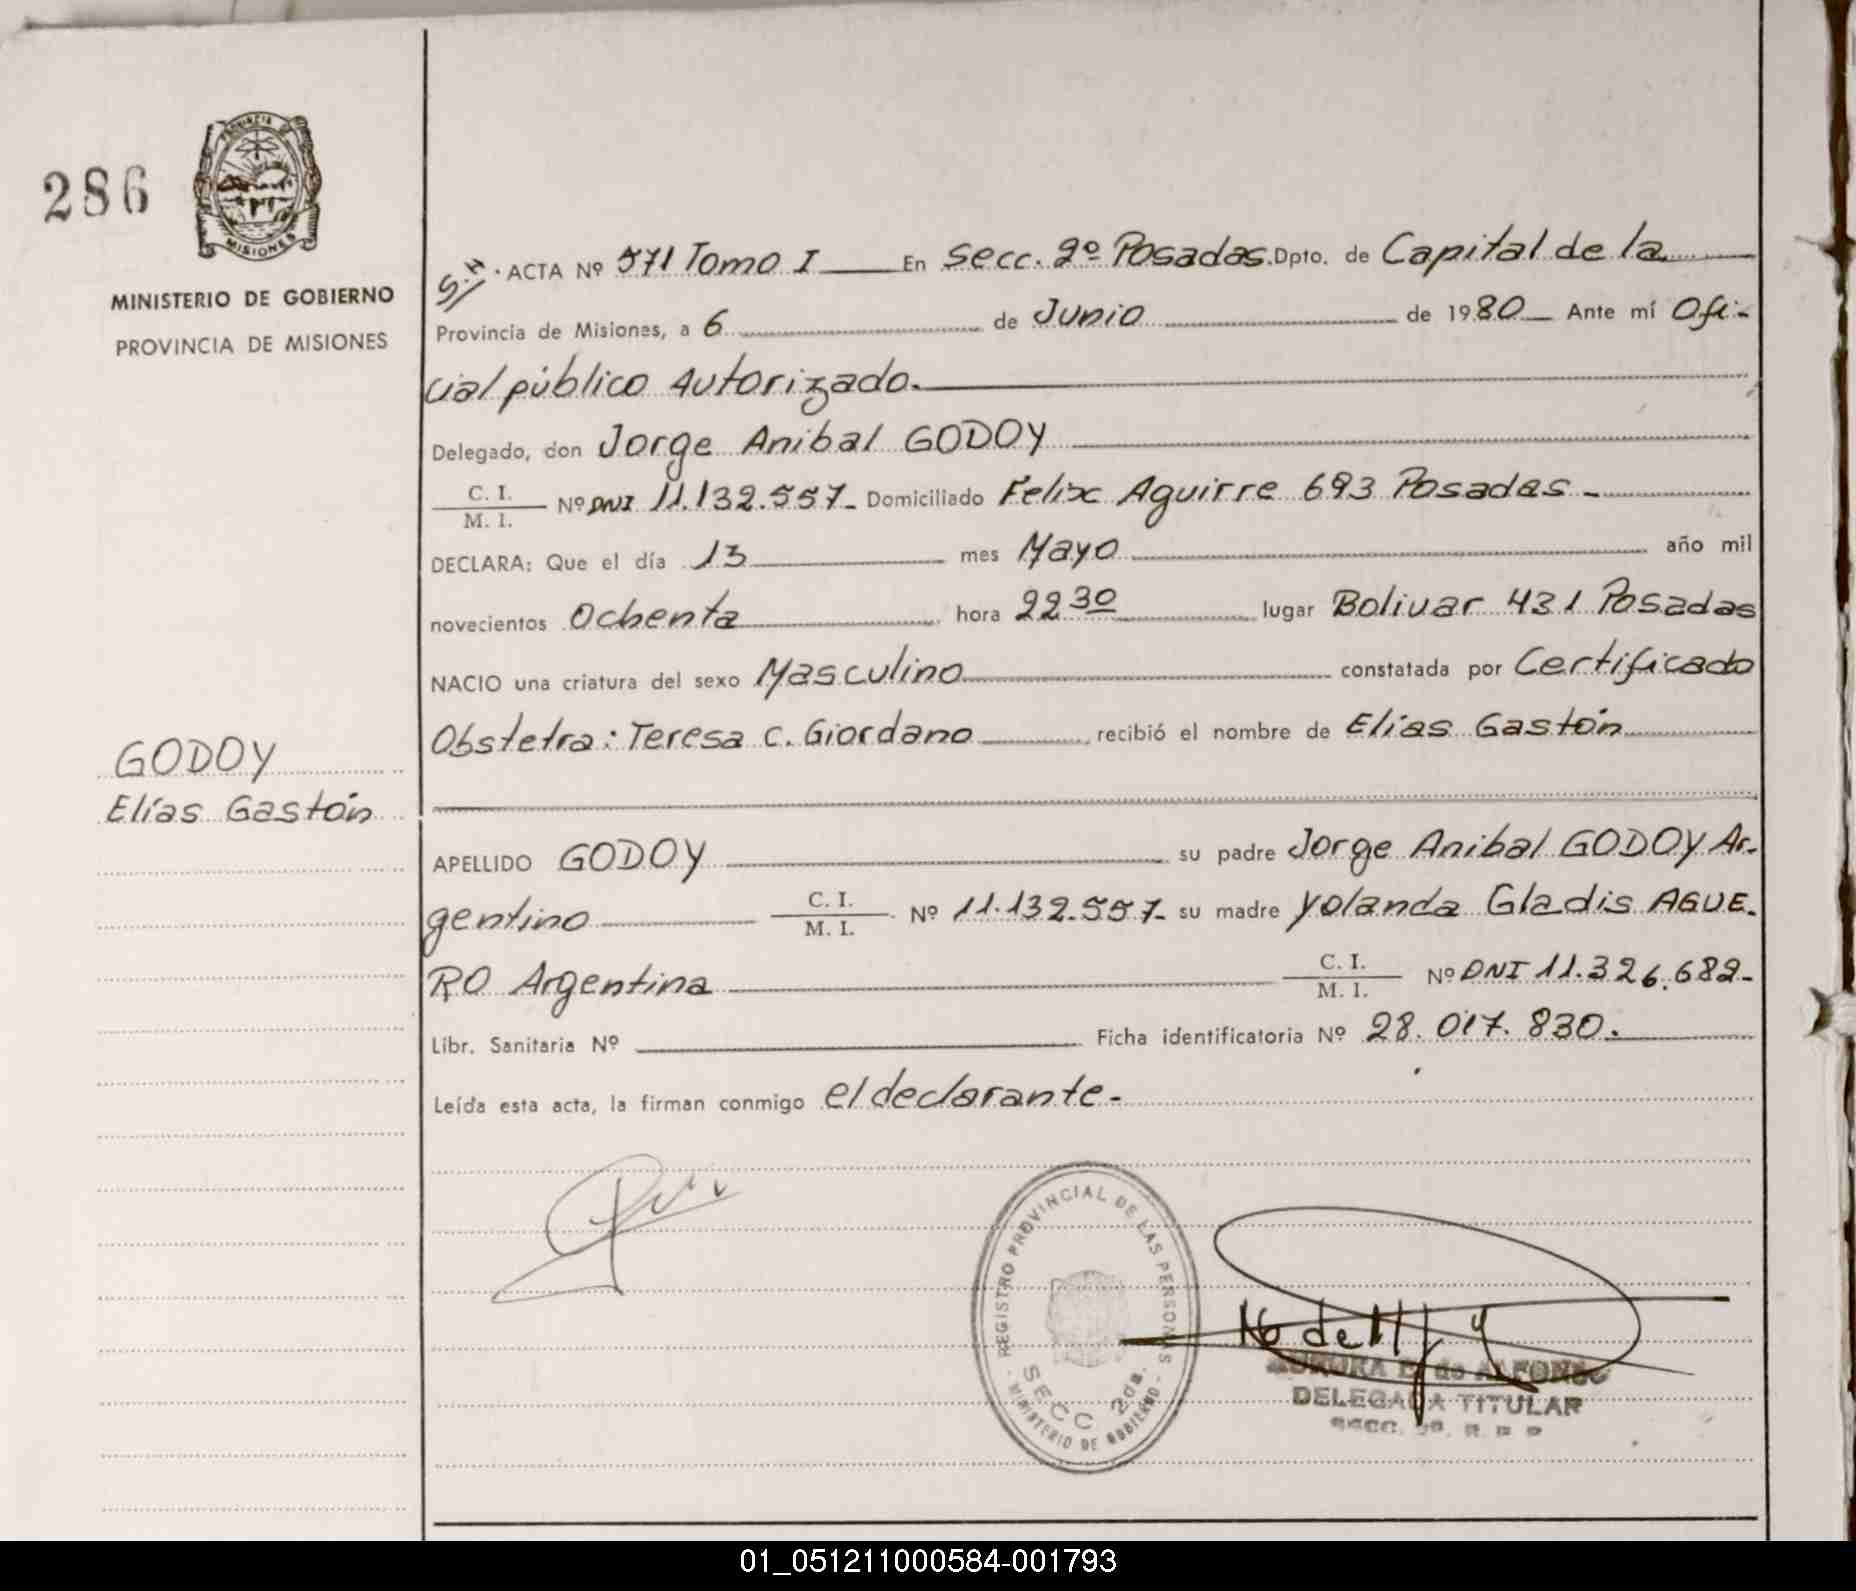 286
PROVINCIA DE
MISIONES
MINISTERIO DE GOBIERNO
PROVINCIA DE MISIONES
GODOY
Elías Gastón
S.H. ACTA Nº 571 Tomo I En Secc. 2º Posadas Dpto. de Capital de la
Provincia de Misiones, a 6 de Junio de 1980 Ante mí Ofi-
cial público Autorizado.
Delegado, don Jorge Anibal GODOY
C. I.
M. I. Nº DNI 11.132.557- Domiciliado Felix Aguirre 693 Posadas -
DECLARA: Que el día 13 mes Mayo año mil
novecientos Ochenta hora 22 30 lugar Bolivar 431 Posadas
NACIO una criatura del sexo Masculino constatada por Certificado
Obstetra: Teresa C. Giordano recibió el nombre de Elías Gastón
APELLIDO GODOY su padre Jorge Anibal GODOY Ar-
gentino C. I.
M. I. Nº 11.132.557- su madre Yolanda Gladis AGUE-
RO Argentina C. I.
M. I. Nº DNI 11.326.682-
Libr. Sanitaria Nº Ficha identificatoria Nº 28.017.830.
Leída esta acta, la firman conmigo el declarante.-
REGISTRO PROVINCIAL DE LAS PERSONAS
SECC 2da.
MINISTERIO DE GOBIERNO
de ALFONSO
DELEGADA TITULAR
SECC.
01_051211000584-001793